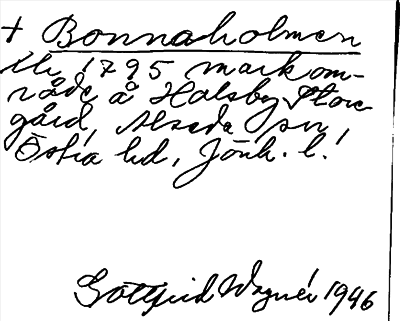 + Bonnaholmen
Ur 1795 markom-
råde å Holsby Stora
gård, Alseda sn,
Östra hd, Jönk. l.
Gottfrid Wagnér 1946